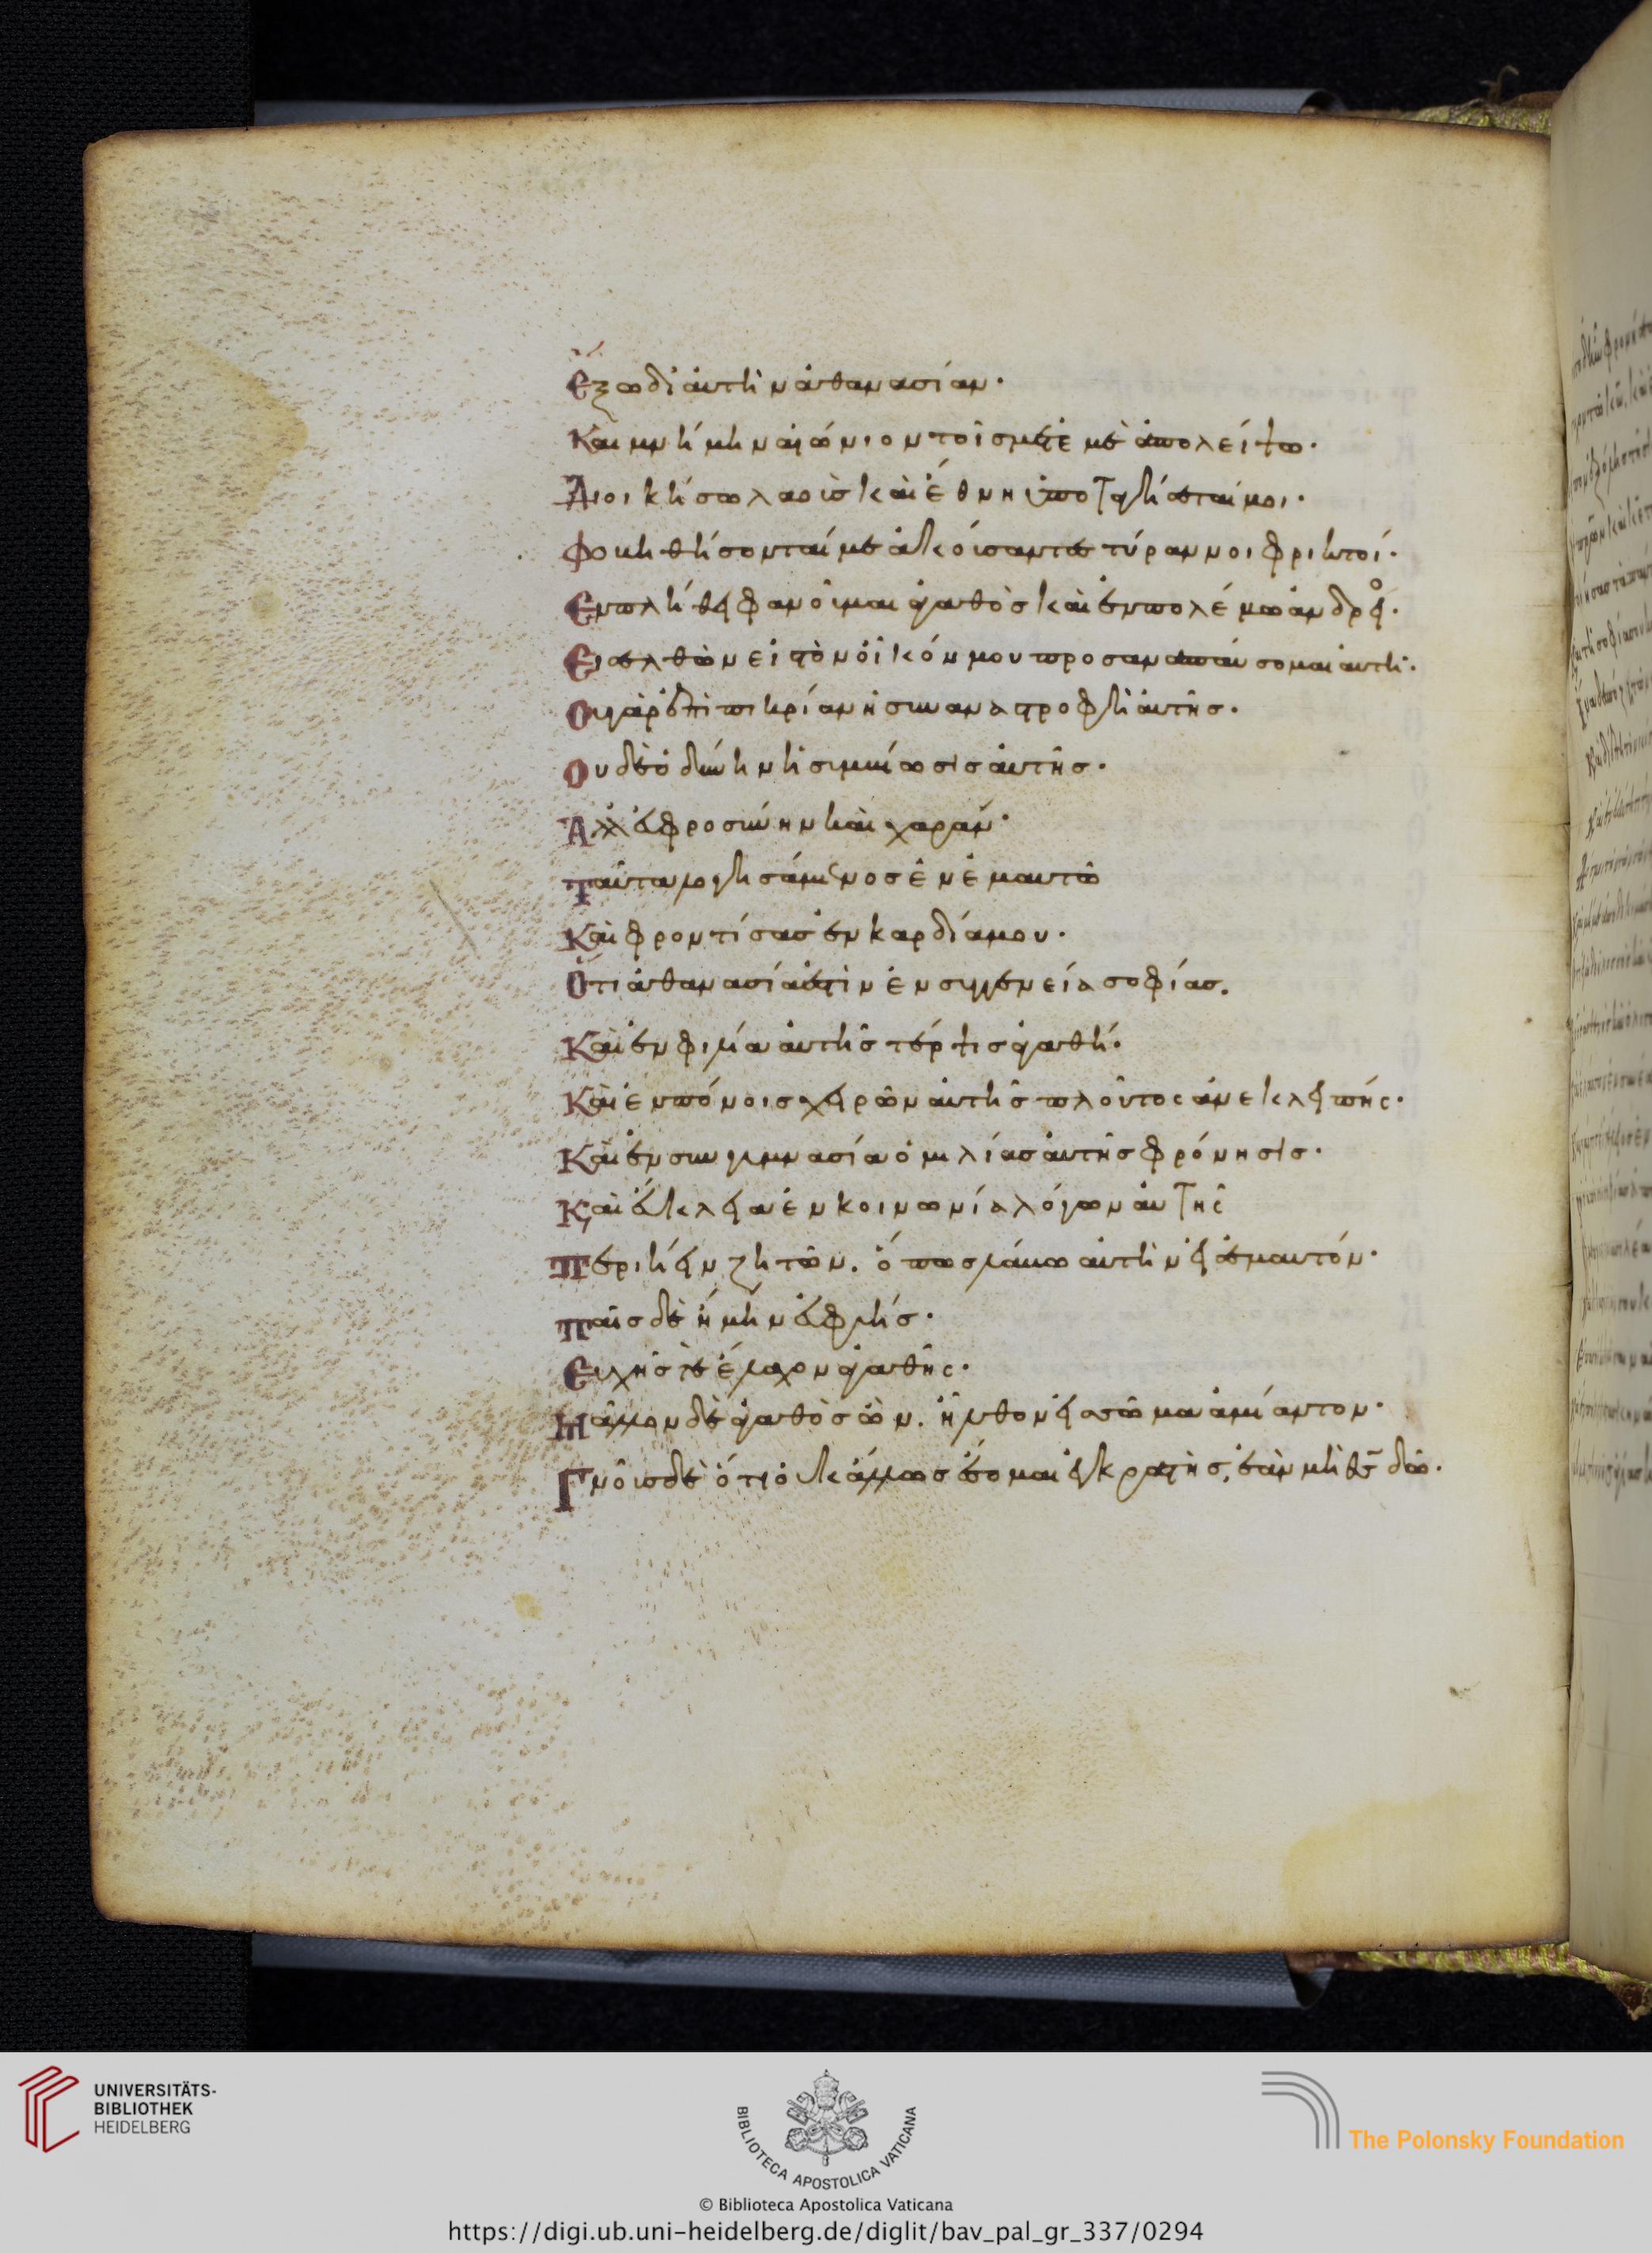 Ἕξω δι᾽ αὐτὴν ἀθανασίαν·
Καὶ μνήμην αἰώνιον τοῖς μετ᾽ ἐμὲ ἀπολείψω·
Διοικήσω λαοὺς καὶ ἔθνη ὑποταγήσεταί μοι·
Φοβηθήσονταί με ἀκούσαντες τύραννοι φρικτοί·
Ἐν πλήθει φανοῦμαι ἀγαθὸς καὶ ἐν πολέμω ἀνδρεῖος·
Εἰσελθὼν εἰς τὸν οἶκόν μου προσαναπαύσομαι αὐτῆ·
Οὐ γὰρ ἔχει πικρίαν ἡ συναναστροφὴ αὐτῆς·
Οὐδὲ ὀδύνην ἡ συμβίωσις αὐτῆς·
Ἀλλ᾽ εὐφροσύνην καὶ χαράν·
Ταῦτα λογισάμενος ἐν ἐμαυτῶ
Καὶ φροντίσας ἐν καρδία μου·
Ὅτι ἀθανασία ἐστὶν ἐν συγγενεία σοφίας.
Καὶ ἐν φιλία αὐτῆς τέρψις ἀγαθή·
Καὶ ἐν πόνοις χειρῶν αὐτῆς πλοῦτος ἀνεκλειπής·
Καὶ ἐν συγγυμνασία ὁμιλίας αὐτῆς φρόνησις·
Καὶ εὔκλεια ἐν κοινωνία λόγων αὐτῆς
Περιήειν ζητῶν. ὅπως λάβω αὐτὴν εἰς ἐμαυτόν·
Παῖς δὲ ἤμην εὐφυής·
Ψυχῆς τε ἔλαχον ἀγαθῆς·
Μᾶλλον δὲ ἀγαθὸς ὢν. ἦλθον εἰς σῶμα ἀμίαντον·
Γνοὺς δὲ ὅτι οὐκ ἄλλως ἔσομαι ἐγκρατὴς, ἐὰν μὴ θς δῶ·
UNIVERSITÄTS-
BIBLIOTHEK
HEIDELBERG
BIBLIOTECA APOSTOLICA VATICANA
The Polonsky Foundation
© Biblioteca Apostolica Vaticana
https://digi.ub.uni-heidelberg.de/diglit/bav_pal_gr_337/0294